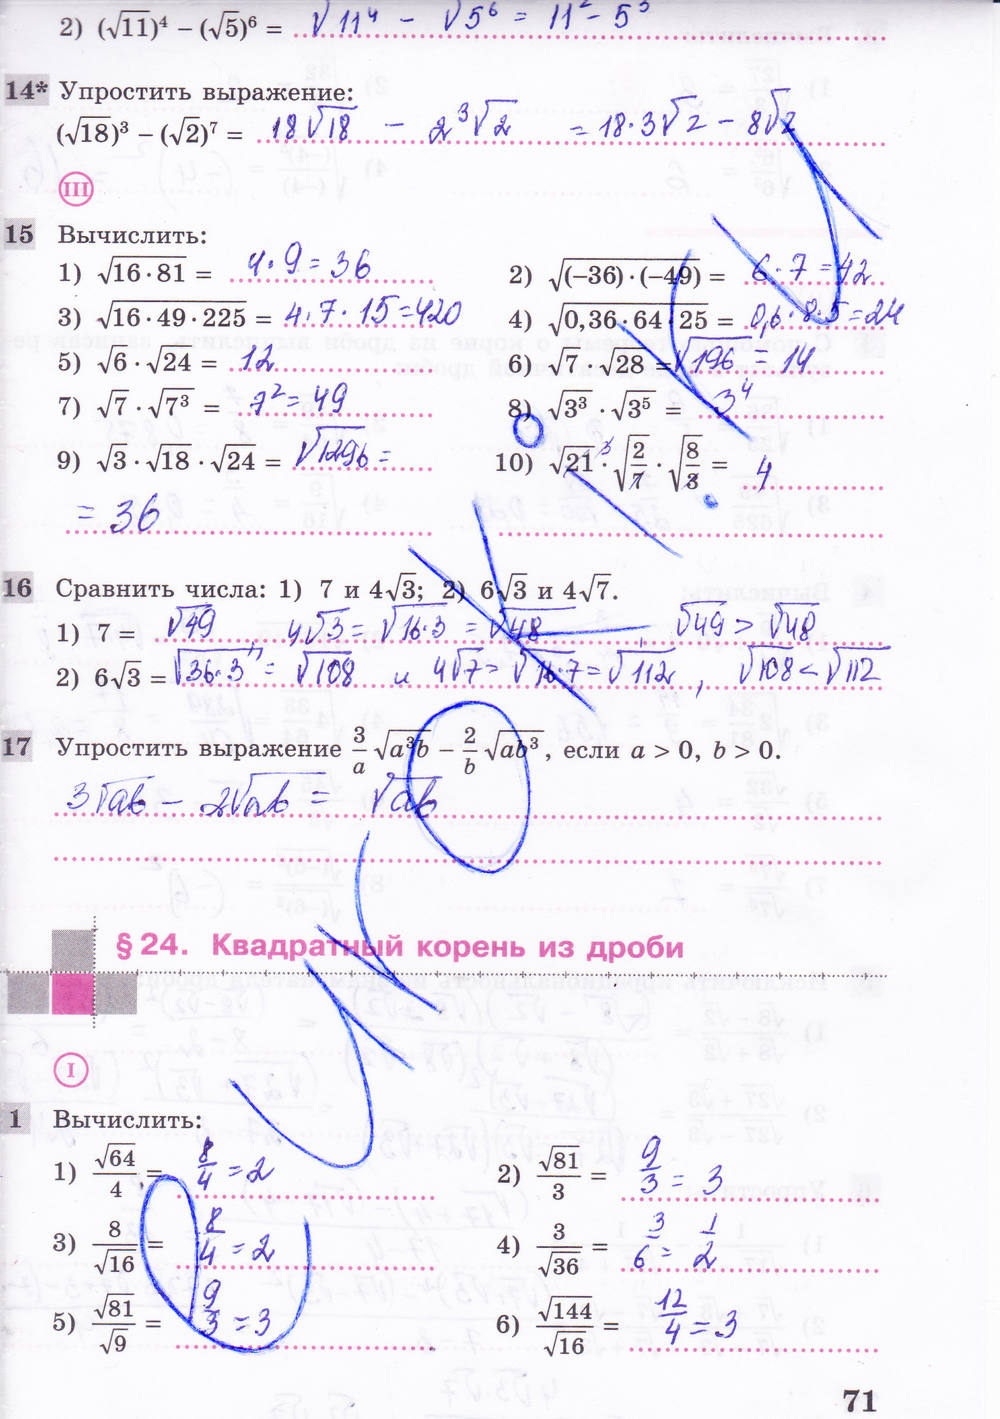 2) (√11)⁴ − (√5)⁶ = √11⁴ − √5⁶ = 11² − 5³
14* Упростить выражение:
(√18)³ − (√2)⁷ = 18√18 − 2³√2 = 18·3√2 − 8√2
III
15 Вычислить:
1) √(16·81) = 4·9 = 36 2) √((−36)·(−49)) = 6·7 = 42
3) √(16·49·225) = 4·7·15 = 420 4) √(0,36·64·25) = 0,6·8·5 = 24
5) √6·√24 = 12 6) √7·√28 = √196 = 14
7) √7·√7³ = 7² = 49 8) √3³·√3⁵ = 3⁴
9) √3·√18·√24 = √1296 = 10) √21·√(2/7)·√(8/3) = 4
= 36
16 Сравнить числа: 1) 7 и 4√3; 2) 6√3 и 4√7.
1) 7 = √49 4√3 = √(16·3) = √48 √49 > √48
2) 6√3 = √(36·3) = √108 и 4√7 = √(16·7) = √112, √108 < √112
17 Упростить выражение 3/a √(a³b) − 2/b √(ab³), если a > 0, b > 0.
3√ab − 2√ab = √ab
§ 24. Квадратный корень из дроби
I
1 Вычислить:
1) √64/4 = 8/4 = 2 2) √81/3 = 9/3 = 3
3) 8/√16 = 8/4 = 2 4) 3/√36 = 3/6 = 1/2
5) √81/√9 = 9/3 = 3 6) √144/√16 = 12/4 = 3
71